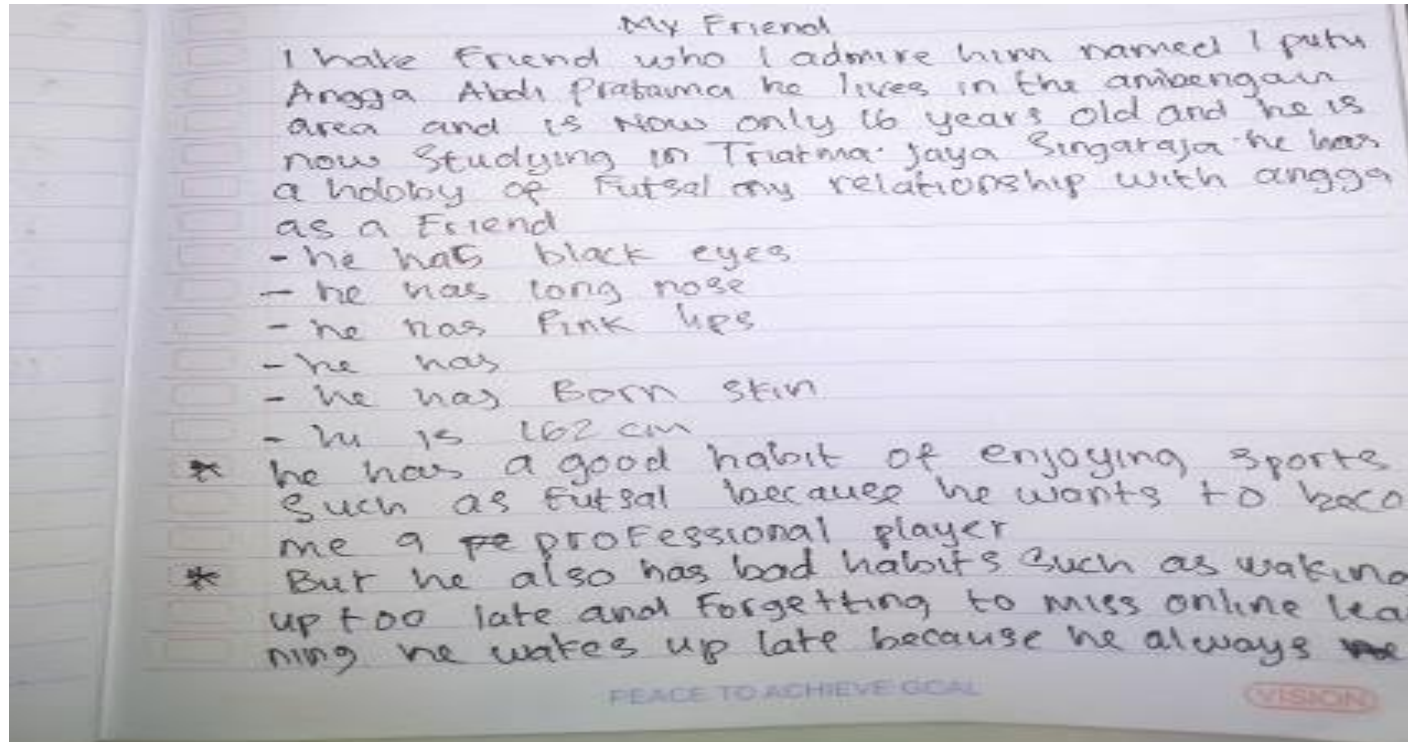 My Friend
I have Friend who I admire him named I putu
Angga Abdi Pratama he lives in the ambengan
area and is Now only 16 years old and he is
now Studying in Triatma Jaya Singaraja he has
a hobby of Futsal my relationship with angga
as a Friend
- he has black eyes
- he has long nose
- he has Pink lips
- he has
- he has Born skin
- he is 162 cm
* he has a good habit of enjoying sports
Such as futsal because he wants to beco
me a professional player
* But he also has bad habits such as waking
up too late and Forgetting to miss online lea
ning he wakes up late because he always
PEACE TO ACHIEVE GOAL
VISION